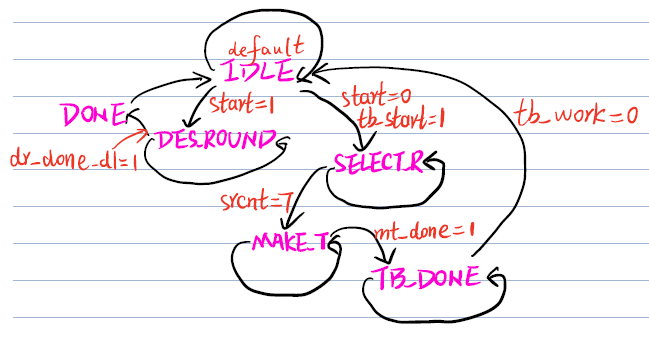 default
IDLE
start=1
start=0
tb_start=1
tb_work=0
DONE
DES_ROUND
dr_done_d1=1
SELECT_R
srcnt=7
MAKE_T
mt_done=1
TB_DONE